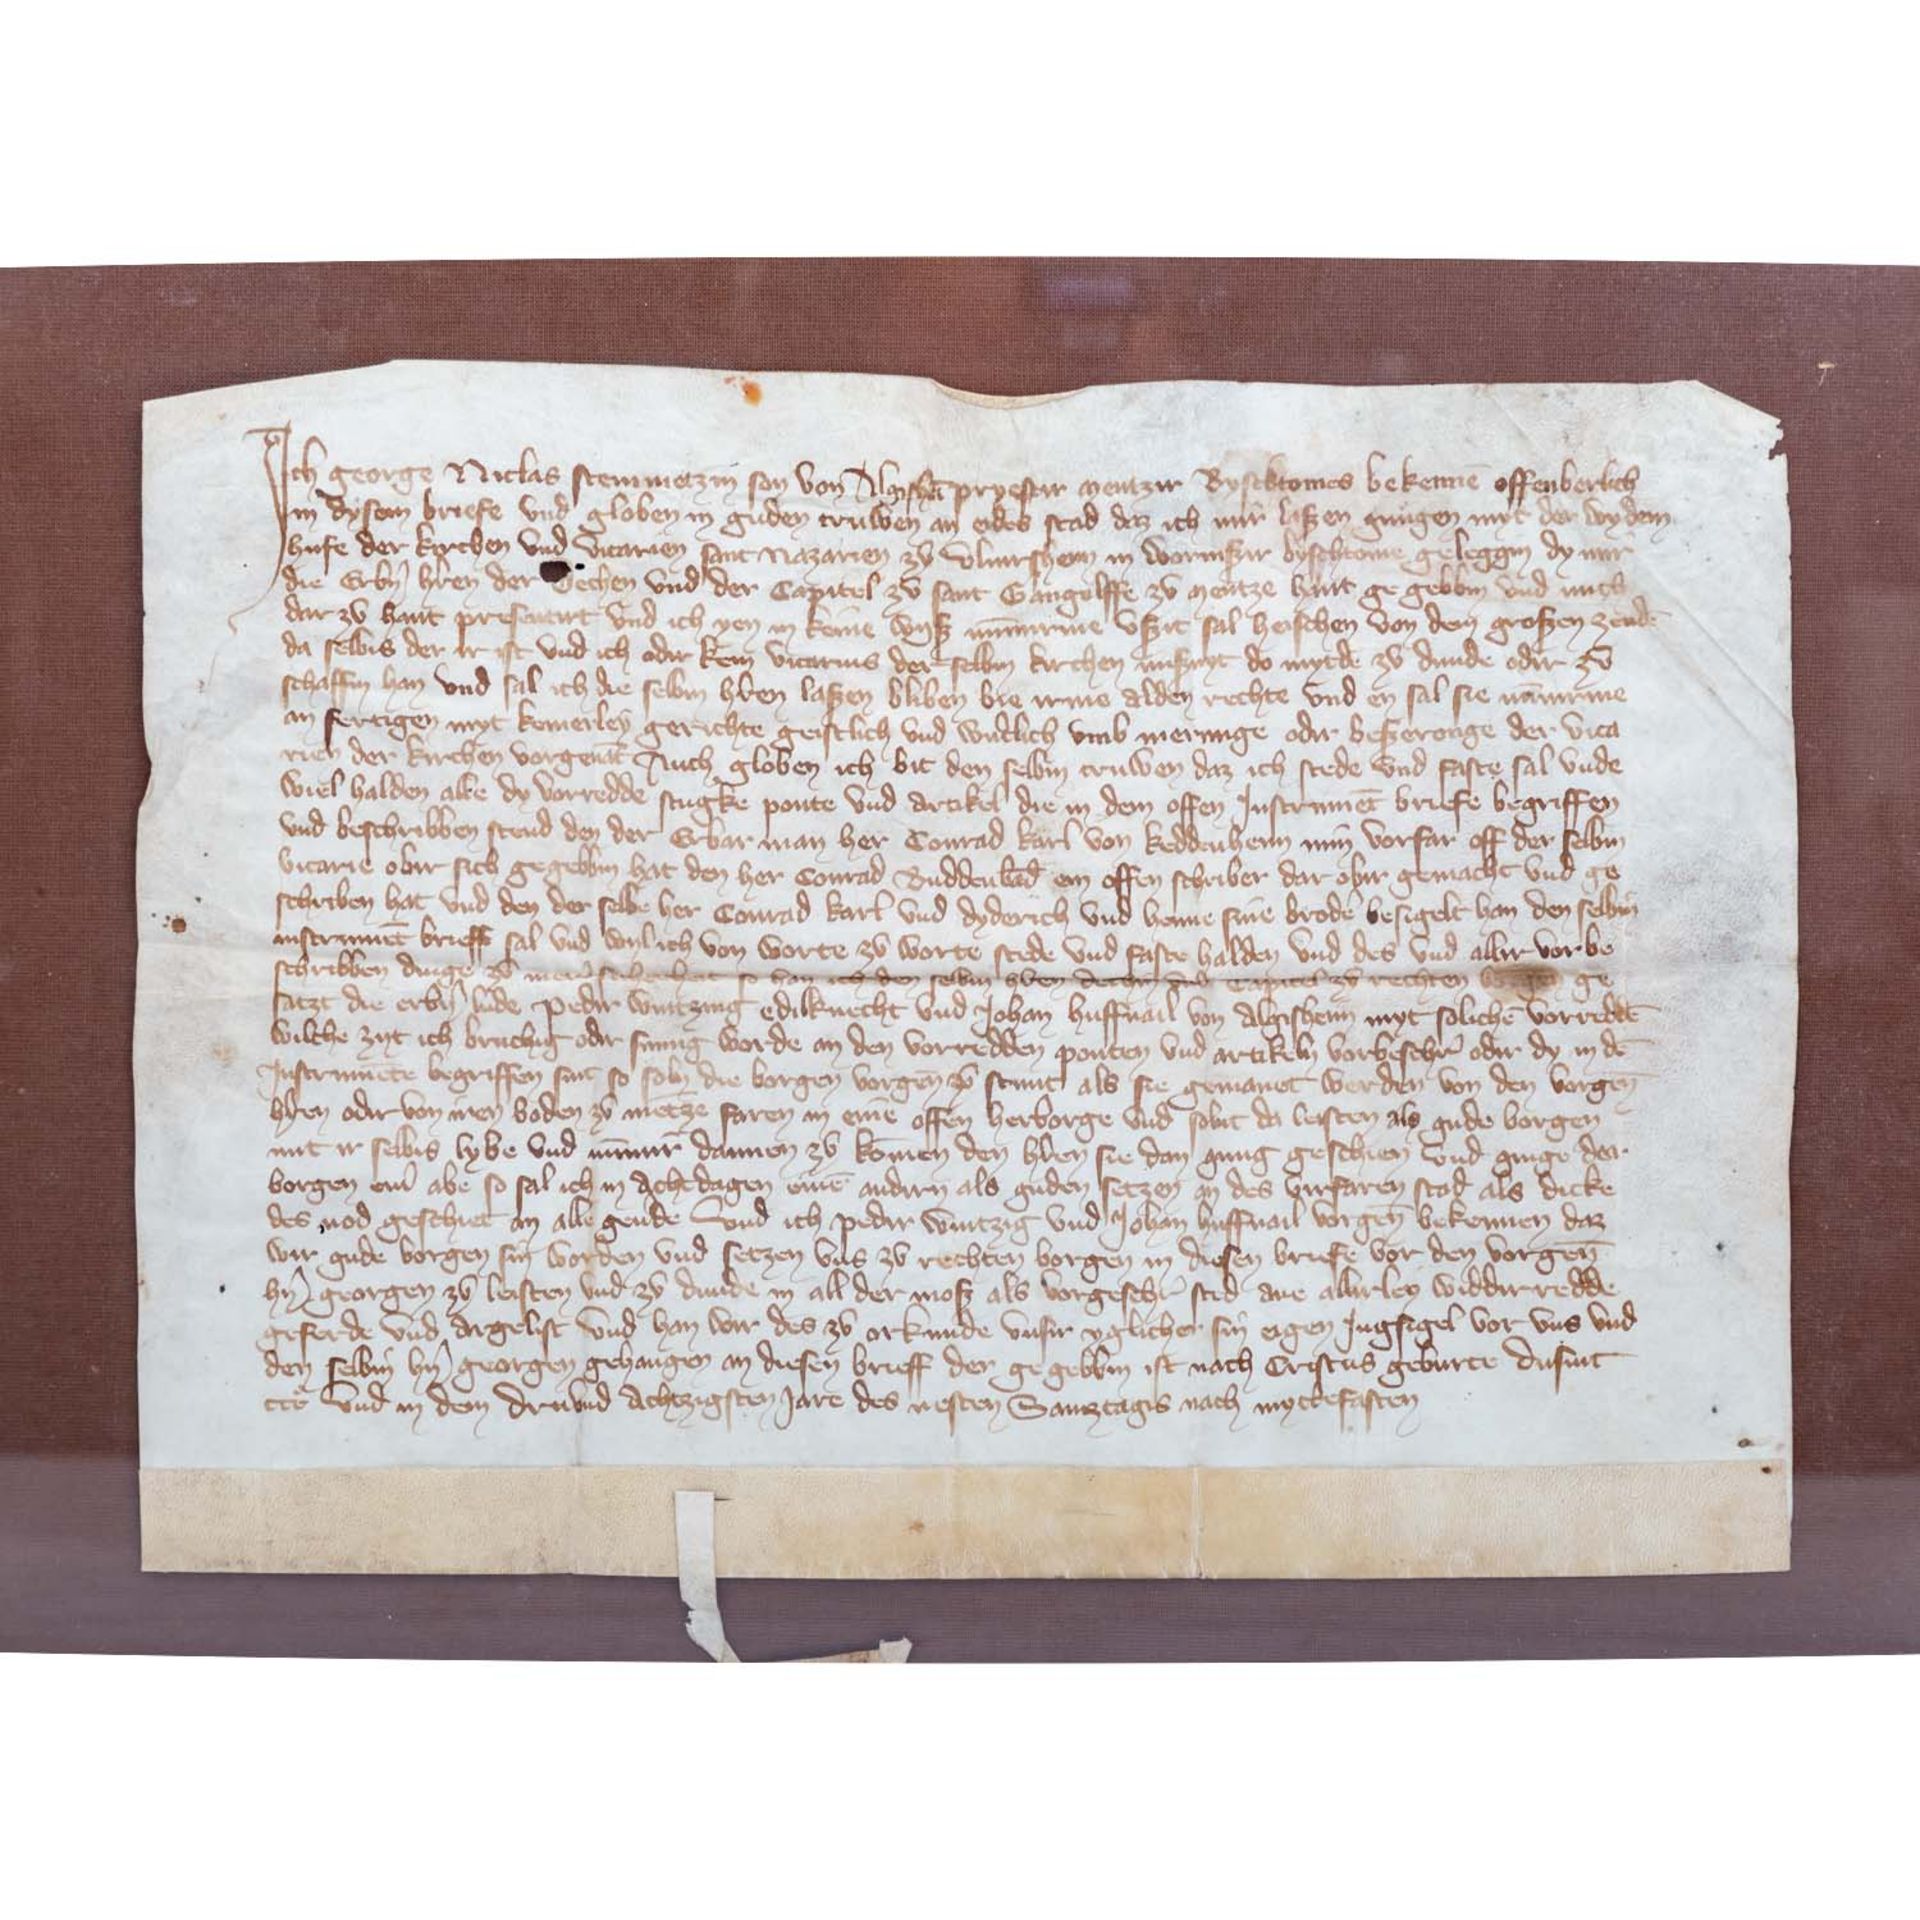 Ich george Niclas stemmetzin son von Algishē pryestir mentzir Byschtomes bekennē offenberlich
in dysem briefe und globen in guden truwen an eides stad daz ich mir laszen gnugen myt der wydem
hufe der kirchen und vicarien sant Nazarien zů Ulmirsheim in wormszir byschtome geleggin dy mir
die Erbn̄ hren der Techen und der Capitel zů sant Gangolffe zů mentze hant ge gebbin und mich
dar zů hant presentirt und ich yen in keine wysz nūmirme uszit sal heischen von dem groszen zende
da selbis der ir ist und ich odir kein vicarius der selbin kirchen myt do mytde zů dunde odir zů
schaffin han und sal ich die selbin hren laszen bliben bie irme alden rechte und en sal sie nūmirme
an fertigen myt keinerley gerichte geistlich und wertlich umb merunge odir beszeronge der vica
rien der kirchen vorgenāt Auch globen ich bit den selbin truwen daz ich stede und faste sal unde
wiel halden alle dy vorredde stugke ponte und artikel die in dem offen Instrumēt briefe begriffen
und beschribben stend den der Erbar man her Conrad karl von keddenheim min vorfar off der selbin
vicarie obir sich gegebbin hat den her Conrad ein offen schriber dar obir gemacht und ge
schriben hat und den der selbe her Conrad karl und dyderich und henne sine brodē besigelt han den selbin
instrumēt brieff sal und wyl ich von worte zů worte stede und faste halden und des und allir vor be
schribben dinge zů merer sicherheit so han ich den selbin hren dechin und Capitel zů rechten borgen ge
satzt die erbn̄ lude Pedir wintzing edilknecht und Johan huffnail von Algisheim myt solichē vorreddē
wilche zyt ich bruchig odir sumig worde an den vorredden ponten und artikeln vorbeschr̄ odir dy in dē
Instrumēte begriffen sint so soln die borgen vorgen̄ zů stunt als sie gemanet werden von den vorgen̄
hren odir von iren boden zů mētze faren in eine offen herborge und solnt da leisten als gude borgen
mit ir selbis lybe und nūmir dannen zů komen den hren sie dan gnug geschien und ginge der
borgen einr abe so sal ich in Achtdagen einē andirn als guden setzen an des virfaren stad als dicke
des nod geschiet an alle geude Und ich pedir wintzig und Johan huffnail vorgen̄ bekennen daz
wir gude borgen sin worden und setzen uns zů rechten borgen in diesen briefe vor den vorgen̄
hn̄ georgen zů leisten und zů dunde in all der mosz als vorgeschr̄ sted ane allirley widdirredde
geferde und Argelist Und han wir des zů orkunde unsir yglicher sin eigen Ingsigel vor uns und
den selbin hn̄ georgen gehangen an diesen brieff der ge gebbin ist nach Cristus geburte dusint
und in dem dru und Achtzigsten Jare des nesten Samztagis nach myttefasten